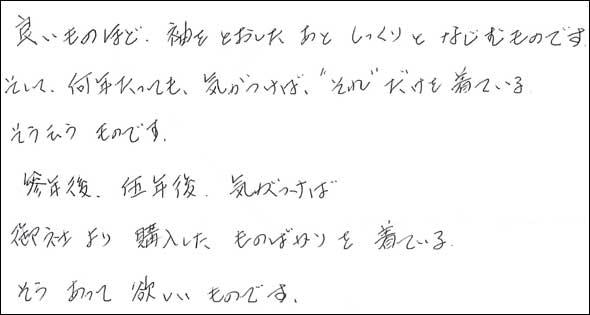 良いものほど、袖をとおしたあとしっくりとなじむものです
そして、何年たっても、気がつけば、“それ”だけを着ている
そう云うものです。
参年後、伍年後、気がつけば
御社より購入したものばかりを着ている
そうあって欲しいものです。